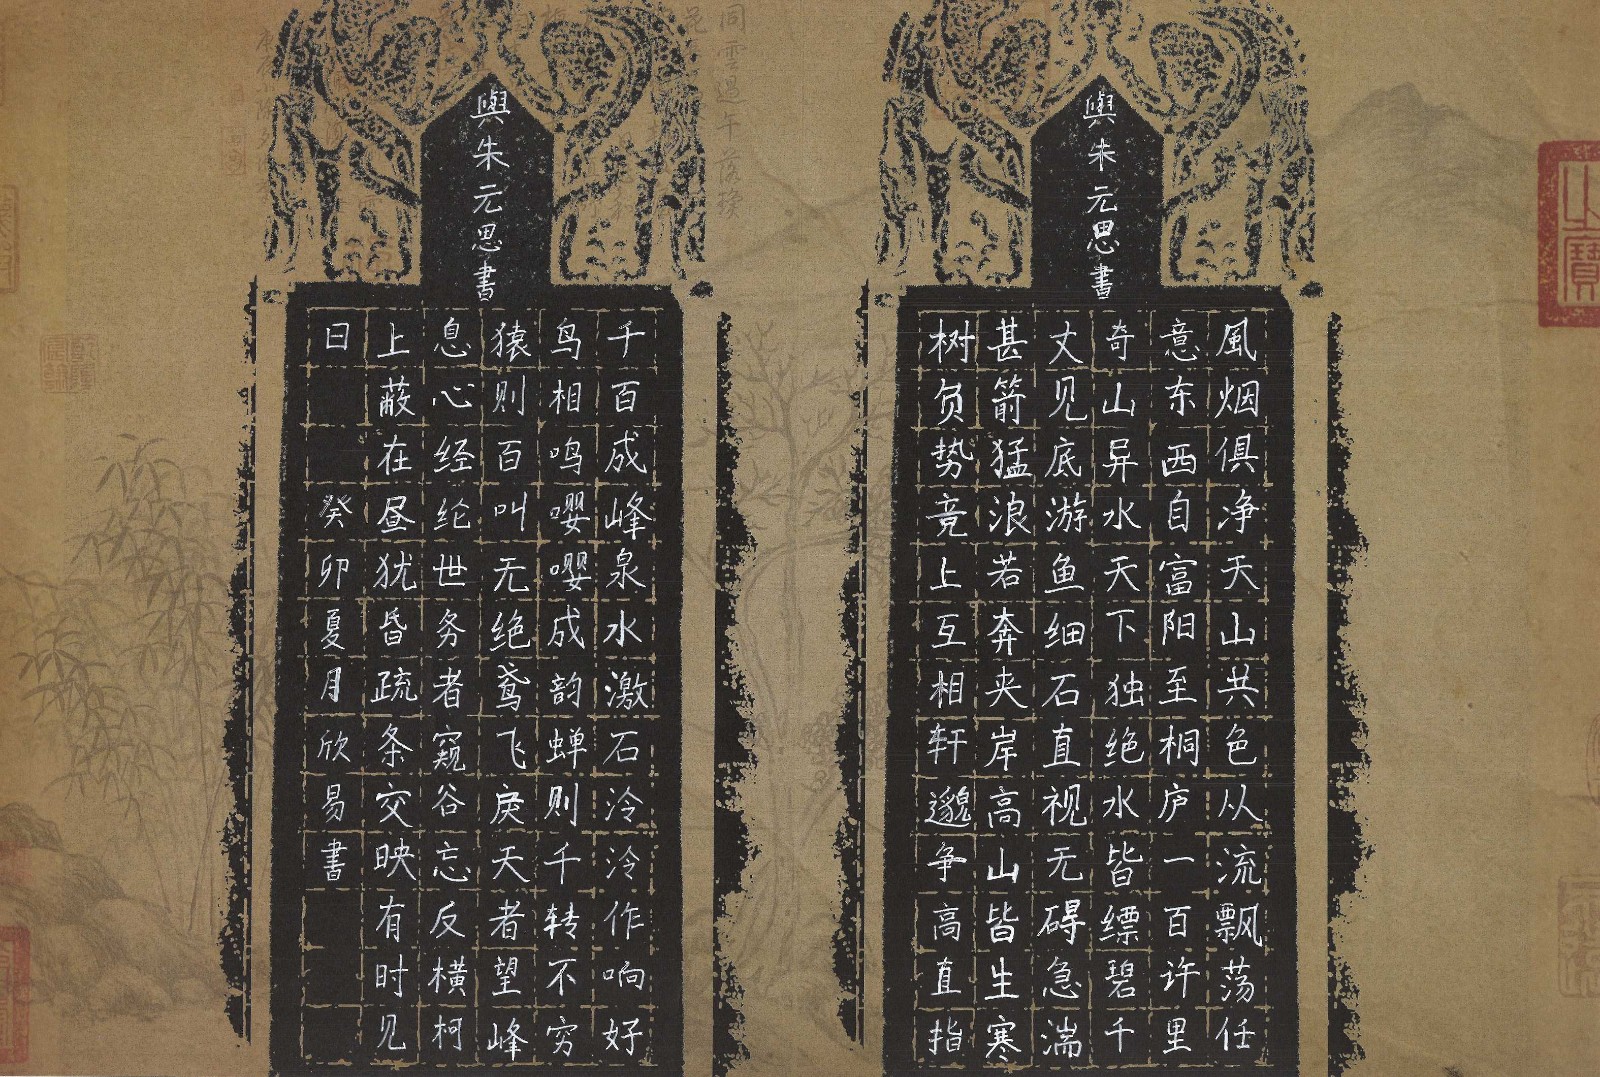 與朱元思書
風烟俱净天山共色从流飘荡任
意东西自富阳至桐庐一百许里
奇山异水天下独绝水皆缥碧千
丈见底游鱼细石直视无碍急湍
甚箭猛浪若奔夹岸高山皆生寒
树负势竞上互相轩邈争高直指
與朱元思書
千百成峰泉水激石泠泠作响好
鸟相鸣嘤嘤成韵蝉则千转不穷
猿则百叫无绝鸢飞戾天者望峰
息心经纶世务者窥谷忘反横柯
上蔽在昼犹昏疏条交映有时见
日
癸卯夏月欣易書